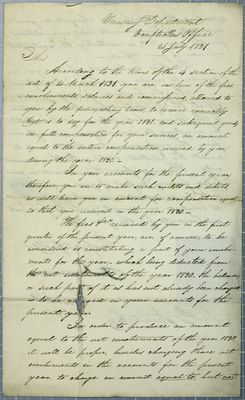 Treasury Department
Comptrollers Office
6 July 1831
Sir
According to the terms of the 4 section of the
act of 2 March 1831 you are in lieu of the fees
emoluments, salaries and commissions allowed to
you by the preexisting laws to receive annually
that is to say for the year 1831 and subsequent years
in full compensation for your services, an amount
equal to the entire compensation received by you
during the year 1830.—
In your accounts for the present year,
therefore, you are to make such credits and debits
as will leave you an amount for compensation equal
to that you received in the year 1830.—
The fees &c received by you in the first
quarter of the present year are of course to be
considered as constituting a part of your emolu-
ments for the year, which being deducted from
the net emoluments of the year 1830, the balance,
or such part of it as has not already been charged
is to be charged in your accounts for the
present year.
In order to produce an amount
equal to the net emoluments of the year 1830
it will be proper, besides charging those net
emoluments in the accounts for the present
year, to charge an amount equal to but not